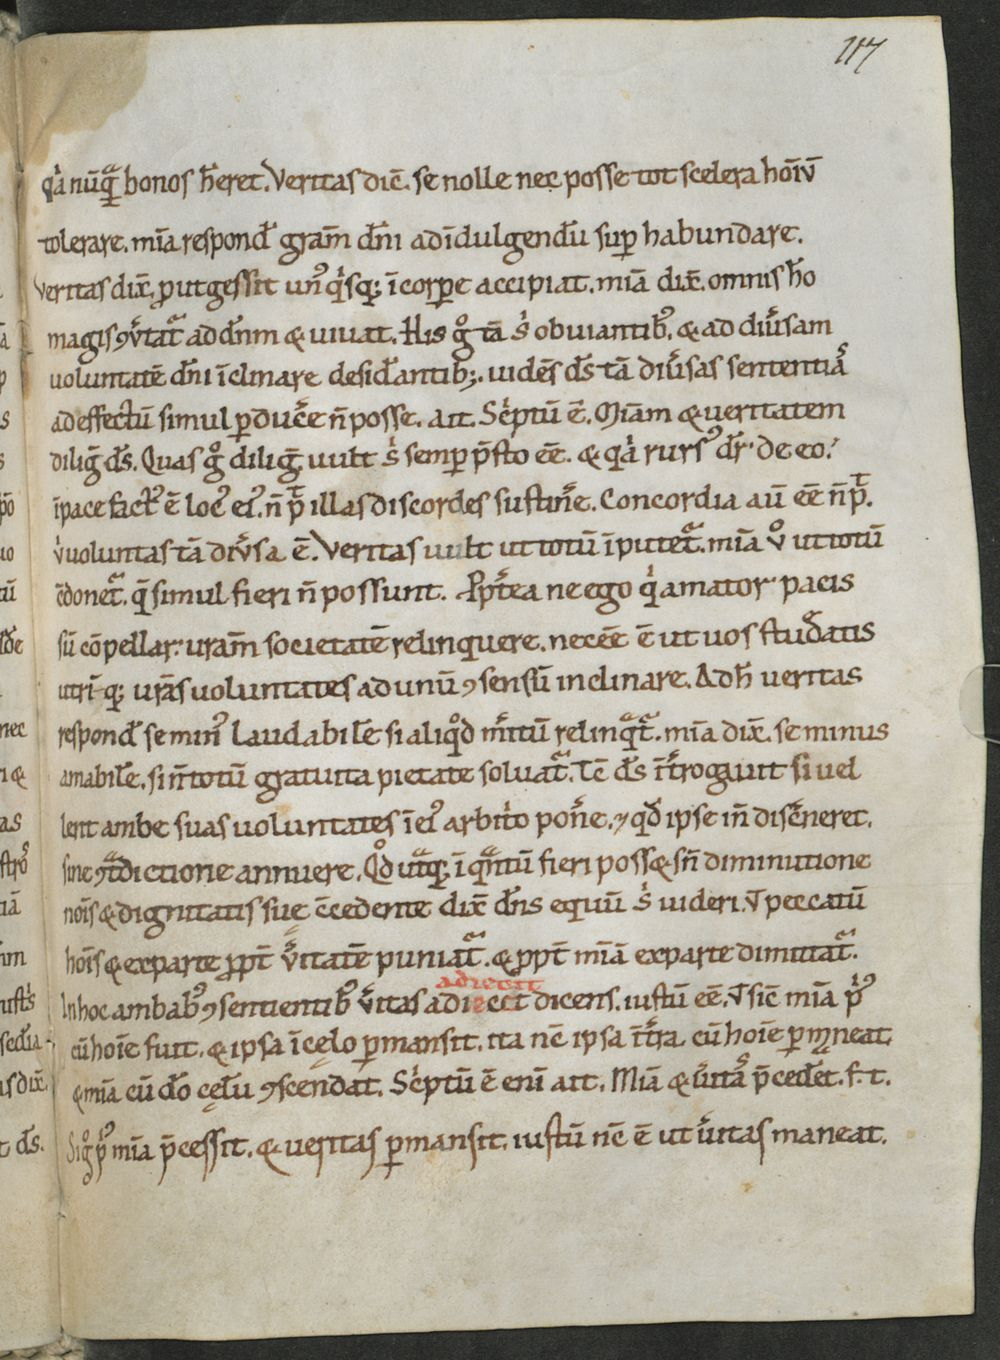 117
q̇a nūq̄ͣ bonos h̄eret. Veritas dic̄. se nolle nec posse tot scelera hoīū
tolerare. mīa respond̄ gram̄ dn̄i adīdulgend̄u sup̄ habundare.
Veritas dix̄. prout gessit un᷒ q̇sq; ī corpore accipiat. mīa dix̄. omnis h̄o
magis ꝯv̄tat᷑ ad dn̄m & uiuat. His gͦ tā s̓ obuiantib᷒. & ad diūsam
uoluntatē dn̄i īclinare desid̄antib;. uidēs d̄s tā diūsas sententiaˢ
ad effectū simul ꝑducēe n̄ posse. ait. Sc̓ptū ē. Miam & ueritatem
diliḡ d̄s. Quas gͦ diliḡ. uult s̓ semꝑ p̄sto eē. & q̇a rurs᷒ dr̄ de eo.
ī pace fact᷒ ē loc᷒ ei᷒. n̄ p̄t illas discordes sustin̄e. Concordia aū eē n̄ p̄t.
ů uoluntas tā diūsa ē. Veritas uult ut totū īputet᷑. mīa ů ut totū
c̄donet᷑. q̄ simul fieri n̄ possunt. Ppt̄ea ne ego q̇ amator pacis
sū cōpellar uram̄ societatē relinquere. necēe ē ut uos stud̄atis
utriq; urās uoluntates ad unū ꝯsensū inclinare. Adh̄ ueritas
respond̄ se min᷒ laudabilē si aliqͦd m̄itū relinqͣt᷑. mīa dix̄. se minus
amabilē. si n̄ totū gratuita pietate soluat᷑. Tc̄ d̄s īt̄rogauit si uel
lent ambe suas uoluntates ī ei᷒ arbit̓o pon̄e. ⁊ qd̄ ipse in̄ disc̄neret.
sine ꝯͣdictione annuere. Qͦd utͣq; ī qͣntū fieri poss& sn̄ diminutione
nōis & dignitatis sue c̄cedente dix̄ dn̄s equū s̓ uideri. ut̄ peccatū
hoīs & ex parte ꝓpt̄ v̄itatē puniat᷑. & ꝓpt̄ mīā ex parte dimittat᷑.
adiecit
In hoc ambab᷒ ꝯsentientib᷒ v̄itas adiecit dicens. iustū eē. ut̄ sic̄ mīa p̓᷒
cū hoīe fuit. & ipsa ī cęlo ꝑmansit. ita nc̄ ipsa ī t̄ra. cū hoīe ꝑmaneat.
& mīa cū d̄o cęlū ꝯscendat. Sc̓ptū ē enī ait. Mīa & ūitaˢ p̄ced̄et. f. t.
Sigͦ p̓᷒ mīa p̄cessit. & ueritas ꝑmansit. iustū nc̄ ē ut ūitas maneat.